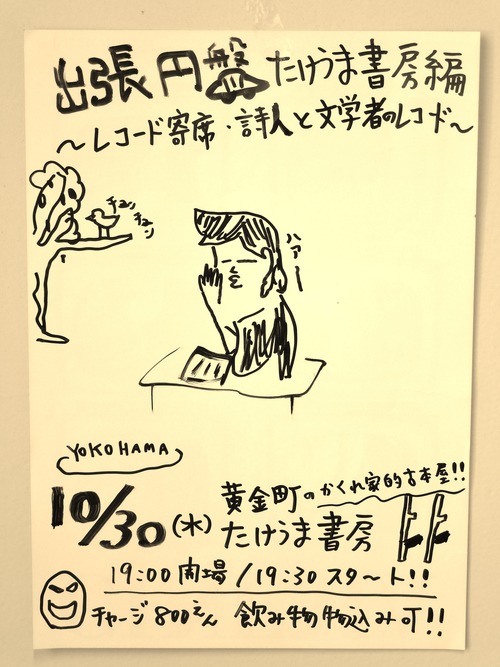 出張円盤 たけうま書房編
〜レコード寄席・詩人と文学者のレコード〜
チュンチュン
ハァー
YOKOHAMA
10/30(木)
黄金町のかくれ家的古本屋!!
たけうま書房
19:00開場/19:30スタート!!
チャージ800えん 飲み物物込み可!!